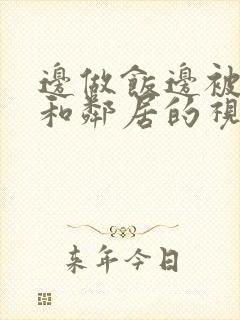 邊做飯邊被
和鄰居的視
來年今日